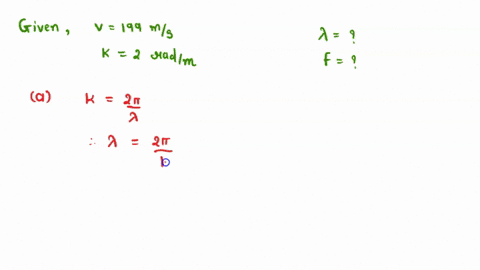 Given, v = 199 m/s
k = 2 rad/m
λ = ?
f = ?
(a) k = 2π/λ
∴ λ = 2π/